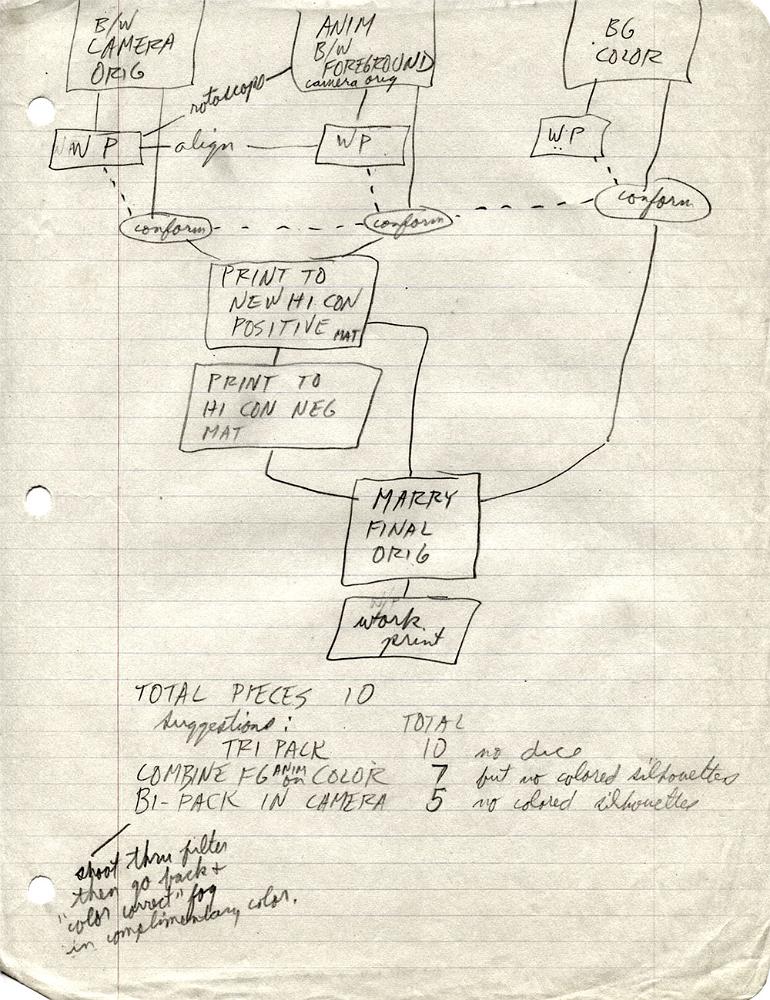 B/W
CAMERA
ORIG
ANIM
B/W
FOREGROUND
camera orig
BG
COLOR
rotoscope
W P
align
WP
W.P
conform
conform
conform
PRINT TO
NEW HI CON
POSITIVE MAT
PRINT TO
HI CON NEG
MAT
MARRY
FINAL
ORIG
W/P
work
print
TOTAL PIECES 10
Suggestions: TOTAL
TRI PACK 10 no dice
COMBINE FG ANIM on COLOR 7 but no colored silhouettes
BI-PACK IN CAMERA 5 no colored silhouettes
shoot thru filter
then go back +
"color correct" fog
in complimentary color.